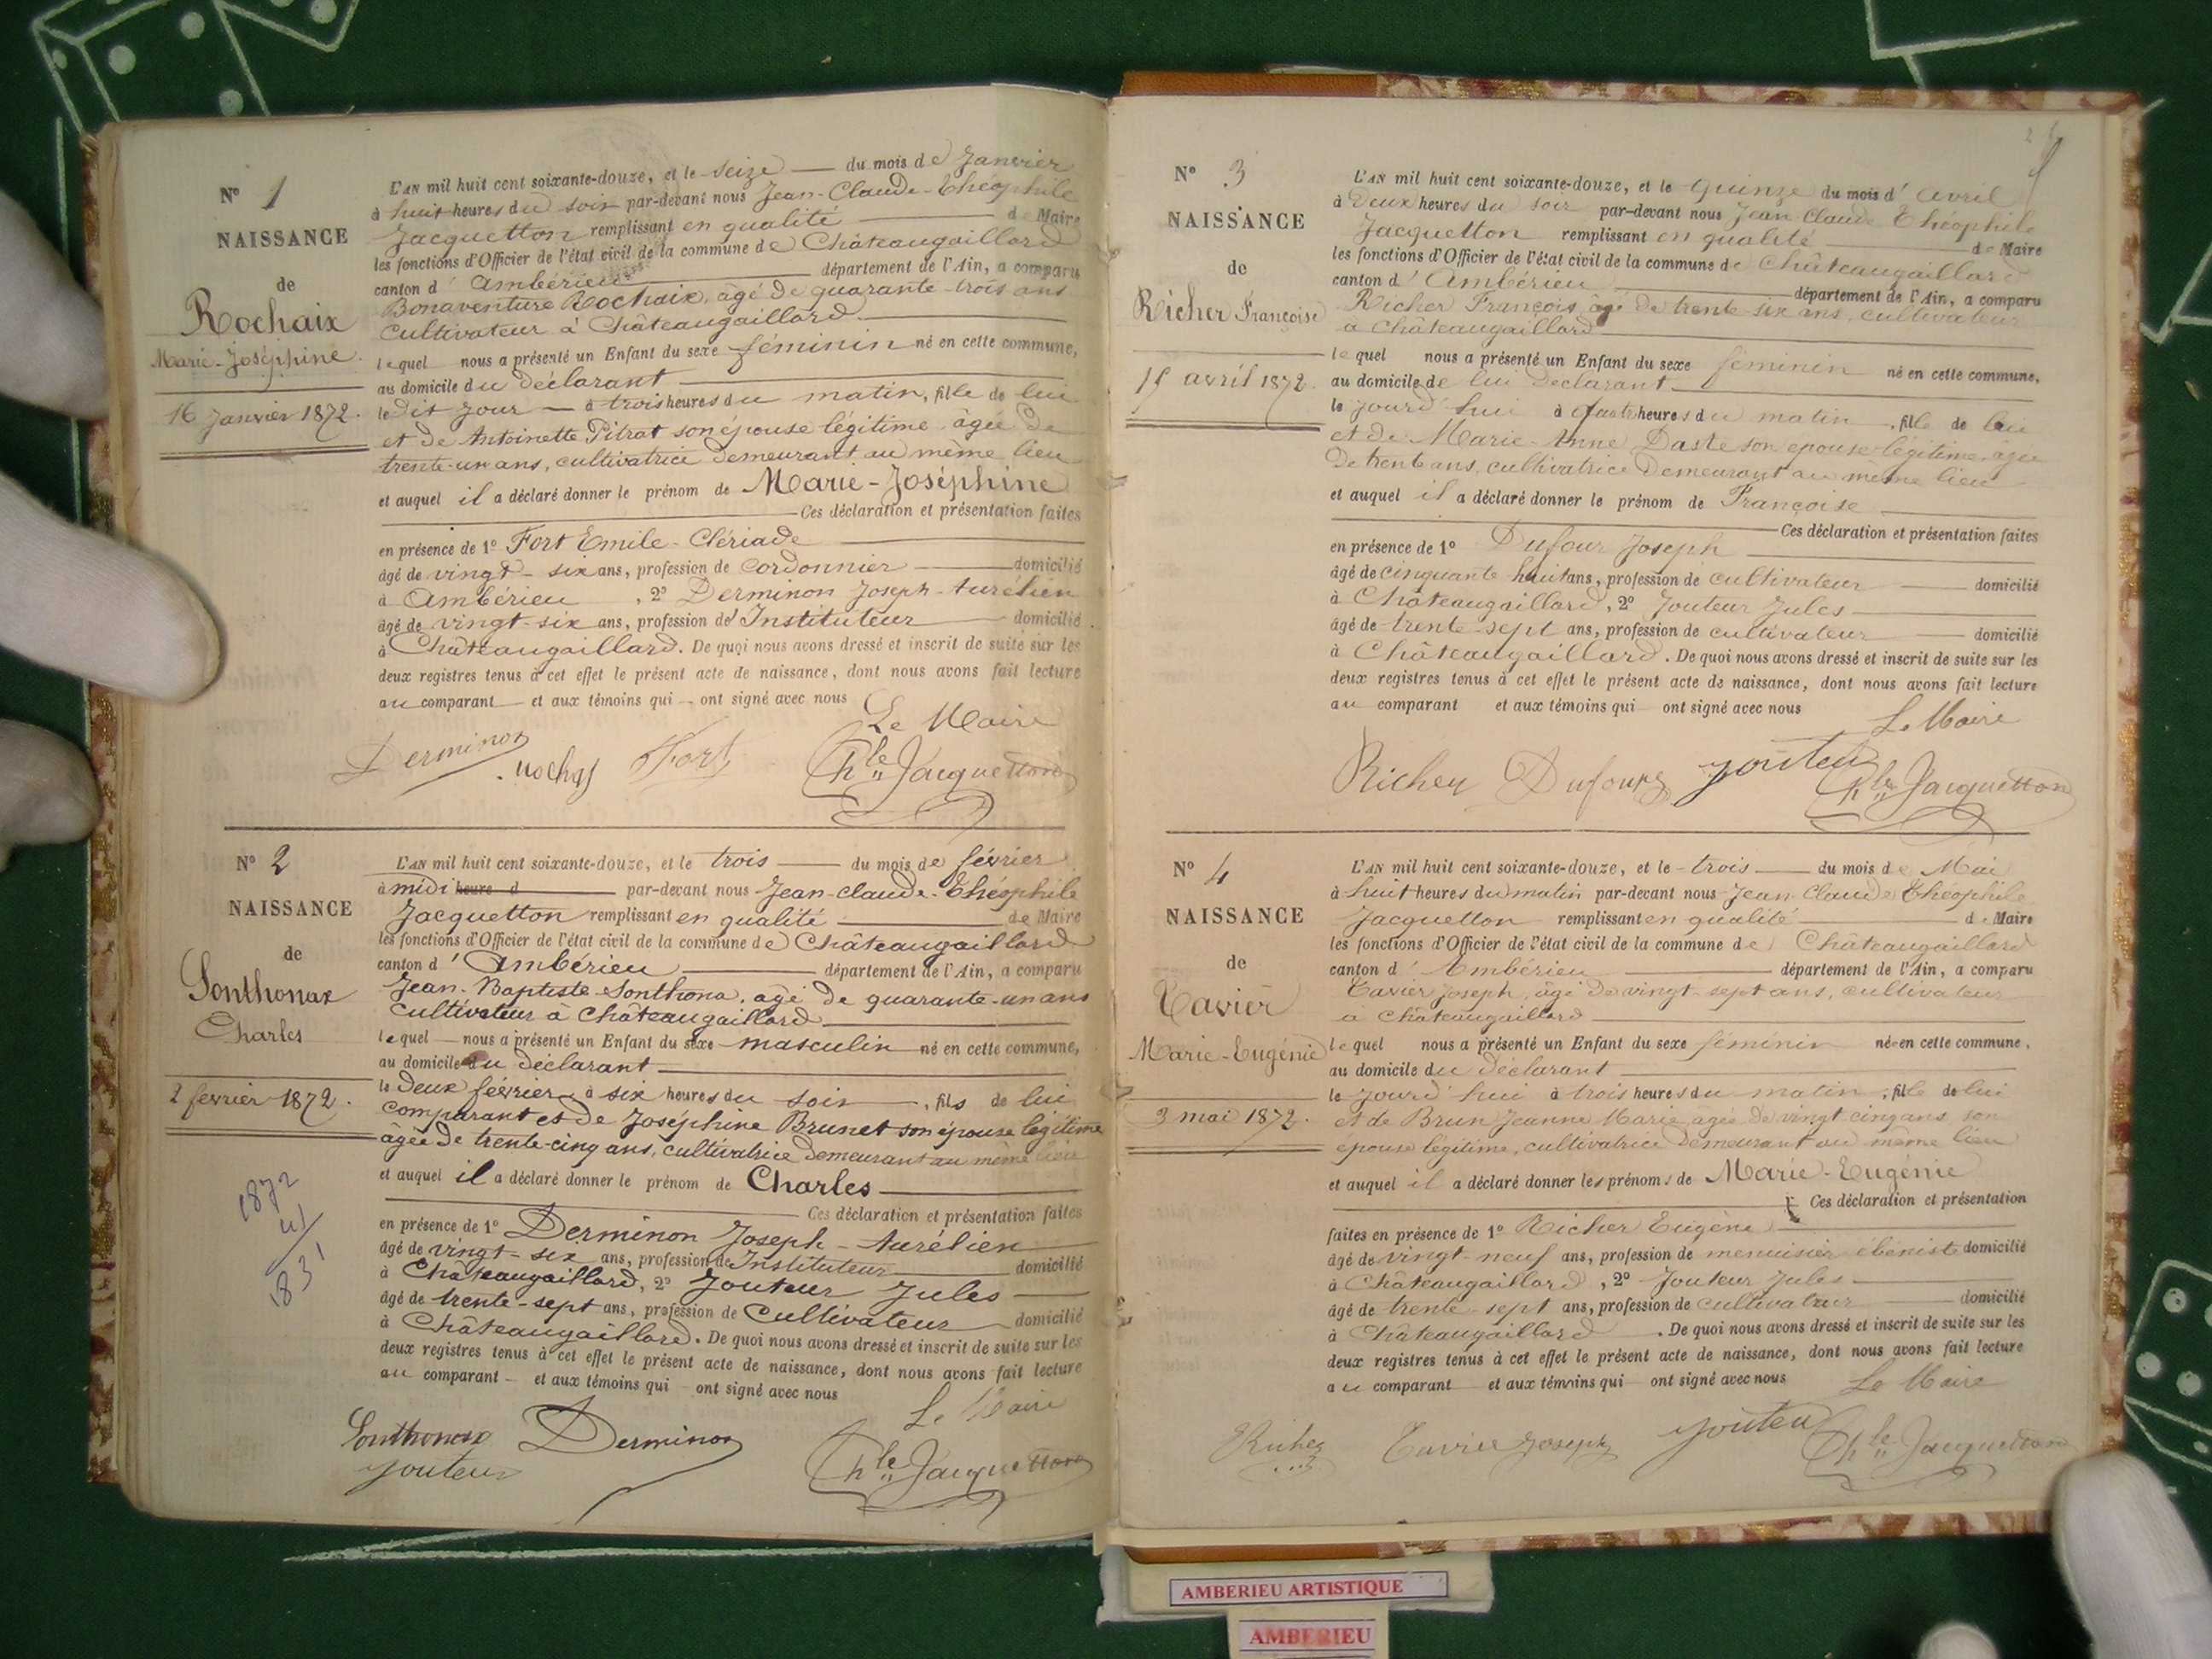 N° 1
NAISSANCE
de
Rochaix
Marie-Joséphine.
16 Janvier 1872.
L'AN mil huit cent soixante-douze, et le seize du mois de Janvier
à huit heures du soir par-devant nous Jean-Claude-Théophile
Jacquetton remplissant en qualité de Maire
les fonctions d'Officier de l'état civil de la commune de Châteaugaillard
canton d' Ambérieu département de l'Ain, a comparu
Bonaventure Rochaix, âgé de quarante-trois ans
Cultivateur à Châteaugaillard
lequel nous a présenté un Enfant du sexe féminin né en cette commune,
au domicile du déclarant
le dit jour à trois heures du matin, fille de lui
et de Antoinette Pitrat son épouse légitime âgée de
trente-un ans, cultivatrice demeurant au même lieu
et auquel il a déclaré donner le prénom de Marie-Joséphine
Ces déclaration et présentation faites
en présence de 1° Fort Emile-Clériade
âgé de vingt-six ans, profession de Cordonnier domicilié
à Ambérieu, 2° Derminon Joseph-Aurélien
âgé de vingt-six ans, profession d'Instituteur domicilié
à Châteaugaillard. De quoi nous avons dressé et inscrit de suite sur les
deux registres tenus à cet effet le présent acte de naissance, dont nous avons fait lecture
au comparant et aux témoins qui ont signé avec nous
Le Maire
Derminon Fort Jacquetton
N° 2
NAISSANCE
de
Sonthonax
Charles
2 février 1872.
1872
41
1831
L'AN mil huit cent soixante-douze, et le trois du mois de février
à midi heure d par-devant nous Jean-Claude-Théophile
Jacquetton remplissant en qualité de Maire
les fonctions d'Officier de l'état civil de la commune de Châteaugaillard
canton d' Ambérieu département de l'Ain, a comparu
Jean-Baptiste Sonthona, âgé de quarante-un ans
cultivateur à Châteaugaillard
lequel nous a présenté un Enfant du sexe masculin né en cette commune,
au domicile du déclarant
le deux février à six heures du soir, fils de lui
comparant et de Joséphine Brunet son épouse légitime
âgée de trente-cinq ans, cultivatrice demeurant au même lieu
et auquel il a déclaré donner le prénom de Charles
Ces déclaration et présentation faites
en présence de 1° Derminon Joseph-Aurélien
âgé de vingt-six ans, profession de Instituteur domicilié
à Châteaugaillard, 2° Jouteur Jules
âgé de trente-sept ans, profession de Cultivateur domicilié
à Châteaugaillard. De quoi nous avons dressé et inscrit de suite sur les
deux registres tenus à cet effet le présent acte de naissance, dont nous avons fait lecture
au comparant et aux témoins qui ont signé avec nous
Le Maire
Sonthonax Derminon
Jouteur Jacquetton
N° 3
NAISSANCE
de
Richer Françoise
15 avril 1872.
L'AN mil huit cent soixante-douze, et le quinze du mois d' avril
à Deux heures du soir par-devant nous Jean-Claude Théophile
Jacquetton remplissant en qualité de Maire
les fonctions d'Officier de l'état civil de la commune de Châteaugaillard
canton d' Ambérieu département de l'Ain, a comparu
Richer François, âgé de trente-six ans, cultivateur
à Châteaugaillard
lequel nous a présenté un Enfant du sexe féminin né en cette commune,
au domicile de lui déclarant
le jourd'hui à quatre heures du matin, fille de lui
et de Marie-Anne Daste son épouse légitime, âgée
de trente ans, cultivatrice demeurant au même lieu
et auquel il a déclaré donner le prénom de Françoise
Ces déclaration et présentation faites
en présence de 1° Dufour Joseph
âgé de cinquante huit ans, profession de cultivateur domicilié
à Châteaugaillard, 2° Jouteur Jules
âgé de trente-sept ans, profession de cultivateur domicilié
à Châteaugaillard. De quoi nous avons dressé et inscrit de suite sur les
deux registres tenus à cet effet le présent acte de naissance, dont nous avons fait lecture
au comparant et aux témoins qui ont signé avec nous
Le Maire
Richer Dufour Jouteur Jacquetton
N° 4
NAISSANCE
de
Tavier
Marie-Eugénie
3 mai 1872.
L'AN mil huit cent soixante-douze, et le trois du mois de Mai
à huit heures du matin par-devant nous Jean-Claude Théophile
Jacquetton remplissant en qualité de Maire
les fonctions d'Officier de l'état civil de la commune de Châteaugaillard
canton d' Ambérieu département de l'Ain, a comparu
Tavier Joseph, âgé de vingt-sept ans, cultivateur
à Châteaugaillard
lequel nous a présenté un Enfant du sexe féminin né en cette commune,
au domicile du déclarant
le jourd'hui à trois heures du matin, fille de lui
et de Brun Jeanne Marie âgée de vingt cinq ans son
épouse légitime, cultivatrice demeurant au même lieu
et auquel il a déclaré donner les prénoms de Marie-Eugénie
Ces déclaration et présentation
faites en présence de 1° Richer Eugène
âgé de vingt-neuf ans, profession de menuisier ébéniste domicilié
à Châteaugaillard, 2° Jouteur Jules
âgé de trente-sept ans, profession de cultivateur domicilié
à Châteaugaillard. De quoi nous avons dressé et inscrit de suite sur les
deux registres tenus à cet effet le présent acte de naissance, dont nous avons fait lecture
au comparant et aux témoins qui ont signé avec nous
Le Maire
Richer Tavier Joseph Jouteur Jacquetton
AMBERIEU ARTISTIQUE
AMBERIEU